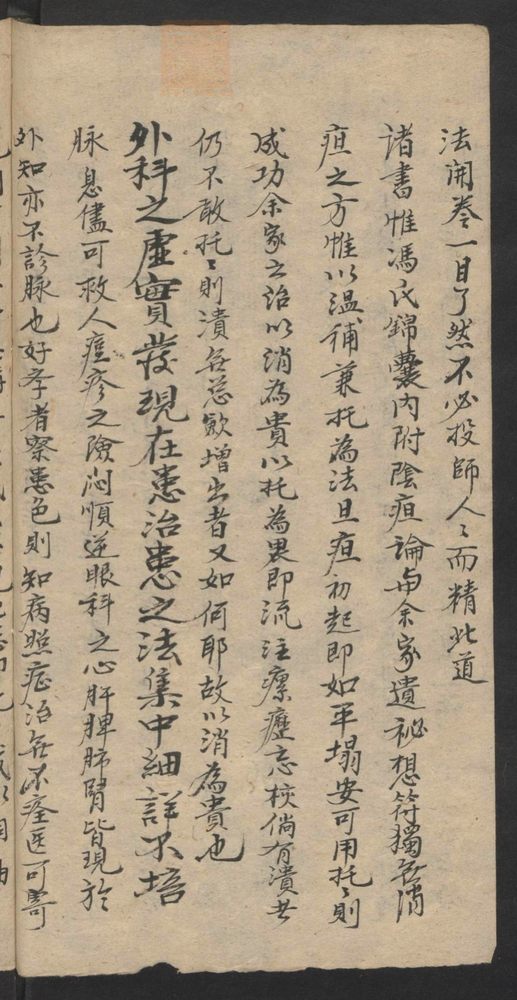 法開卷一目了然不必投師人〻而精此道
諸書惟馮氏錦囊内附陰疽論与余家遺秘想符獨無消
疽之方惟以溫補兼托為法且疽初起即如平塌安可用托〻則
成功余家之治以消為貴以托為畏即流注瘰癧忘核倘有潰者
仍不敢托〻則潰無忌歛增出者又如何耶故以消為貴也
外科之虛實發現在患治患之法集中細詳不培
脉息儘可救人痘疹之險闷順逆眼科之心肝脾肺腎皆現於
外知亦不診脉也好孝者察患色則知病照症治無不痊医可寄